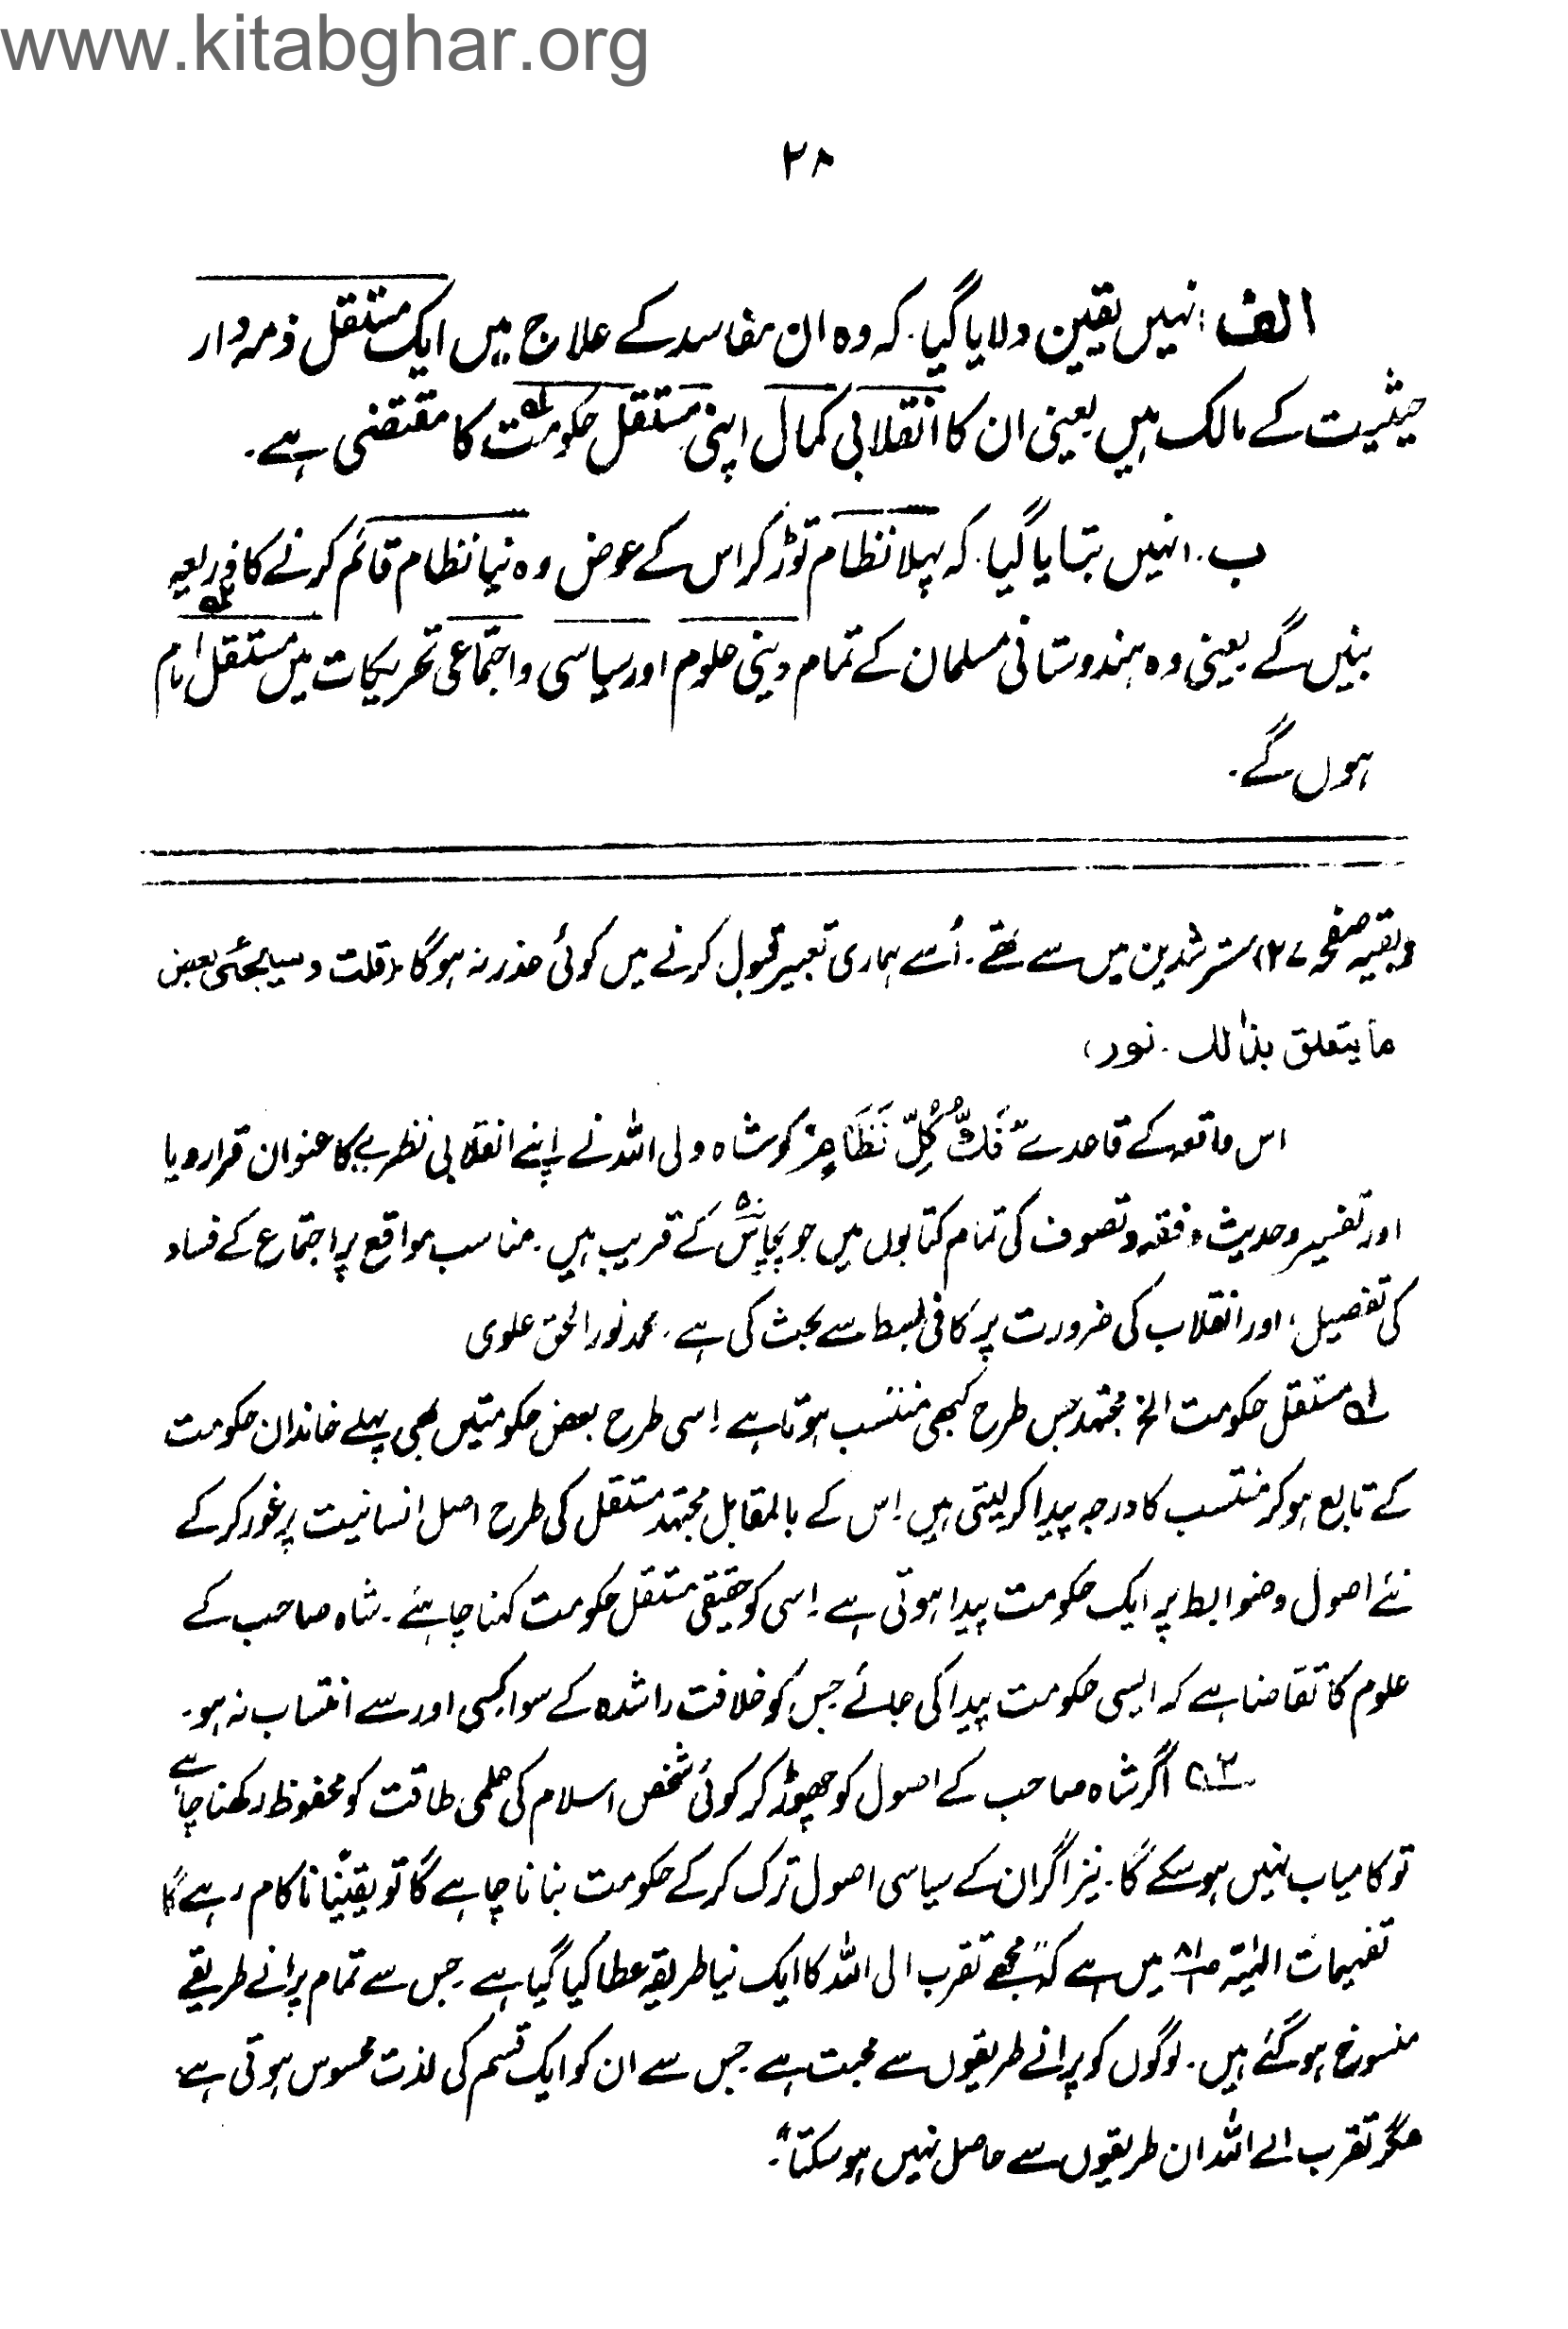 www.kitabghar.org
۲۸
الف: انہیں یقین دلایا گیا۔ کہ وہ ان مفاسد کے علاج میں ایک مستقل ذمہ دار
حیثیت کے مالک ہیں یعنی ان کا انقلابی کمال اپنی مستقل حکومت۱ کا مقتضی ہے۔
ب۔ انہیں بتایا گیا۔ کہ پہلا نظام توڑ کر اس کے عوض وہ نیا نظام قائم کرنے کا ذریعہ
بنیں گے یعنی وہ ہندوستانی مسلمان کے تمام دینی علوم اور سیاسی و اجتماعی تحریکات میں مستقل امام۲
ہوں گے۔
(بقیہ صفحہ ۲۷) مسترشدین میں سے تھے۔ اُسے ہماری تعبیر قبول کرنے میں کوئی عذر نہ ہوگا (قلت وسیجئی بعض
ما یتعلق بذالک۔ نور)
اس واقعہ کے قاعدے "فَکُّ کُلِّ نَظَامٍ" کو شاہ ولی اللہ نے اپنے انقلابی نظریے کا عنوان قرار دیا
اور تفسیر و حدیث و فقہ و تصوف کی تمام کتابوں میں جو پچاس۵۰ کے قریب ہیں۔ مناسب مواقع پر اجتماع کے فساد
کی تفصیل، اور انقلاب کی ضرورت پر کافی بسط سے بحث کی ہے۔ محمد نور الحق علوی
۱؎ مستقل حکومت الخ مجتہد جس طرح کبھی منتسب ہوتا ہے اِسی طرح بعض حکومتیں بھی پہلے خاندان حکومت
کے تابع ہو کر منتسب کا درجہ پیدا کر لیتی ہیں۔ اِس کے بالمقابل مجتہد مستقل کی طرح اصل انسانیت پر غور کر کے
نئے اصول و ضوابط پر ایک حکومت پیدا ہوتی ہے۔ اِسی کو حقیقی مستقل حکومت کہنا چاہئے۔ شاہ صاحب کے
علوم کا تقاضا ہے کہ ایسی حکومت پیدا کی جائے جس کو خلافت راشدہ کے سوا کسی اور سے انتساب نہ ہو۔
۲؎ اگر شاہ صاحب کے اصول کو چھوڑ کر کوئی شخص اسلام کی علمی طاقت کو محفوظ رکھنا چاہے
تو کامیاب نہیں ہو سکے گا۔ نیز اگر ان کے سیاسی اصول ترک کر کے حکومت بنانا چاہے گا تو یقیناً ناکام رہے گا
تفہیمات الٰہیہ میں ہے کہ "مجھے تقرب الی اللہ کا ایک نیا طریقہ عطا کیا گیا ہے۔ جس سے تمام پرانے طریقے
منسوخ ہو گئے ہیں۔ لوگوں کو پرانے طریقوں سے محبت ہے جس سے ان کو ایک قسم کی لذت محسوس ہوتی ہے۔
مگر تقرب الے اللہ ان طریقوں سے حاصل نہیں ہو سکتا"۔